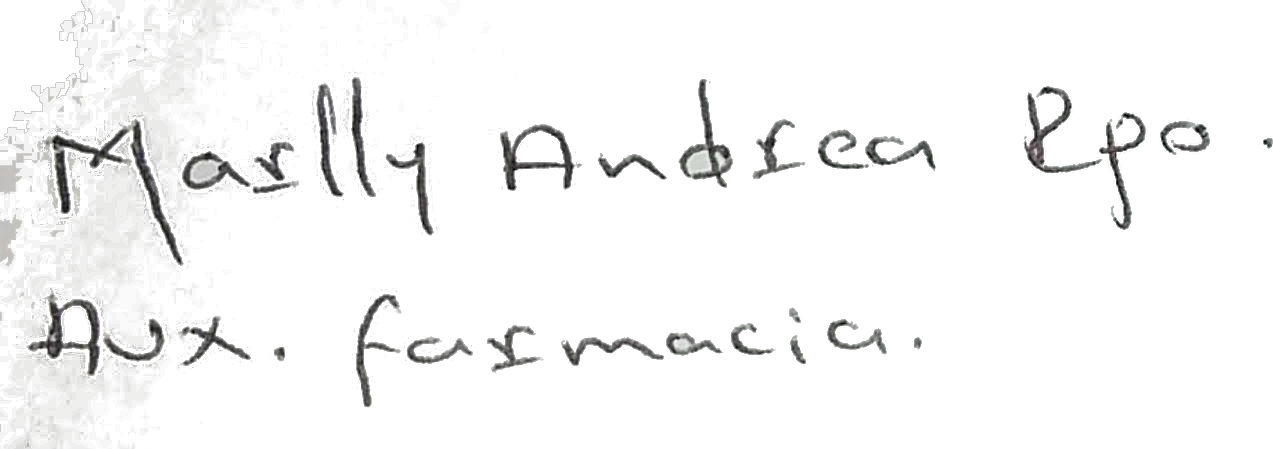 Marlly Andrea Rpo.
Aux. farmacia.